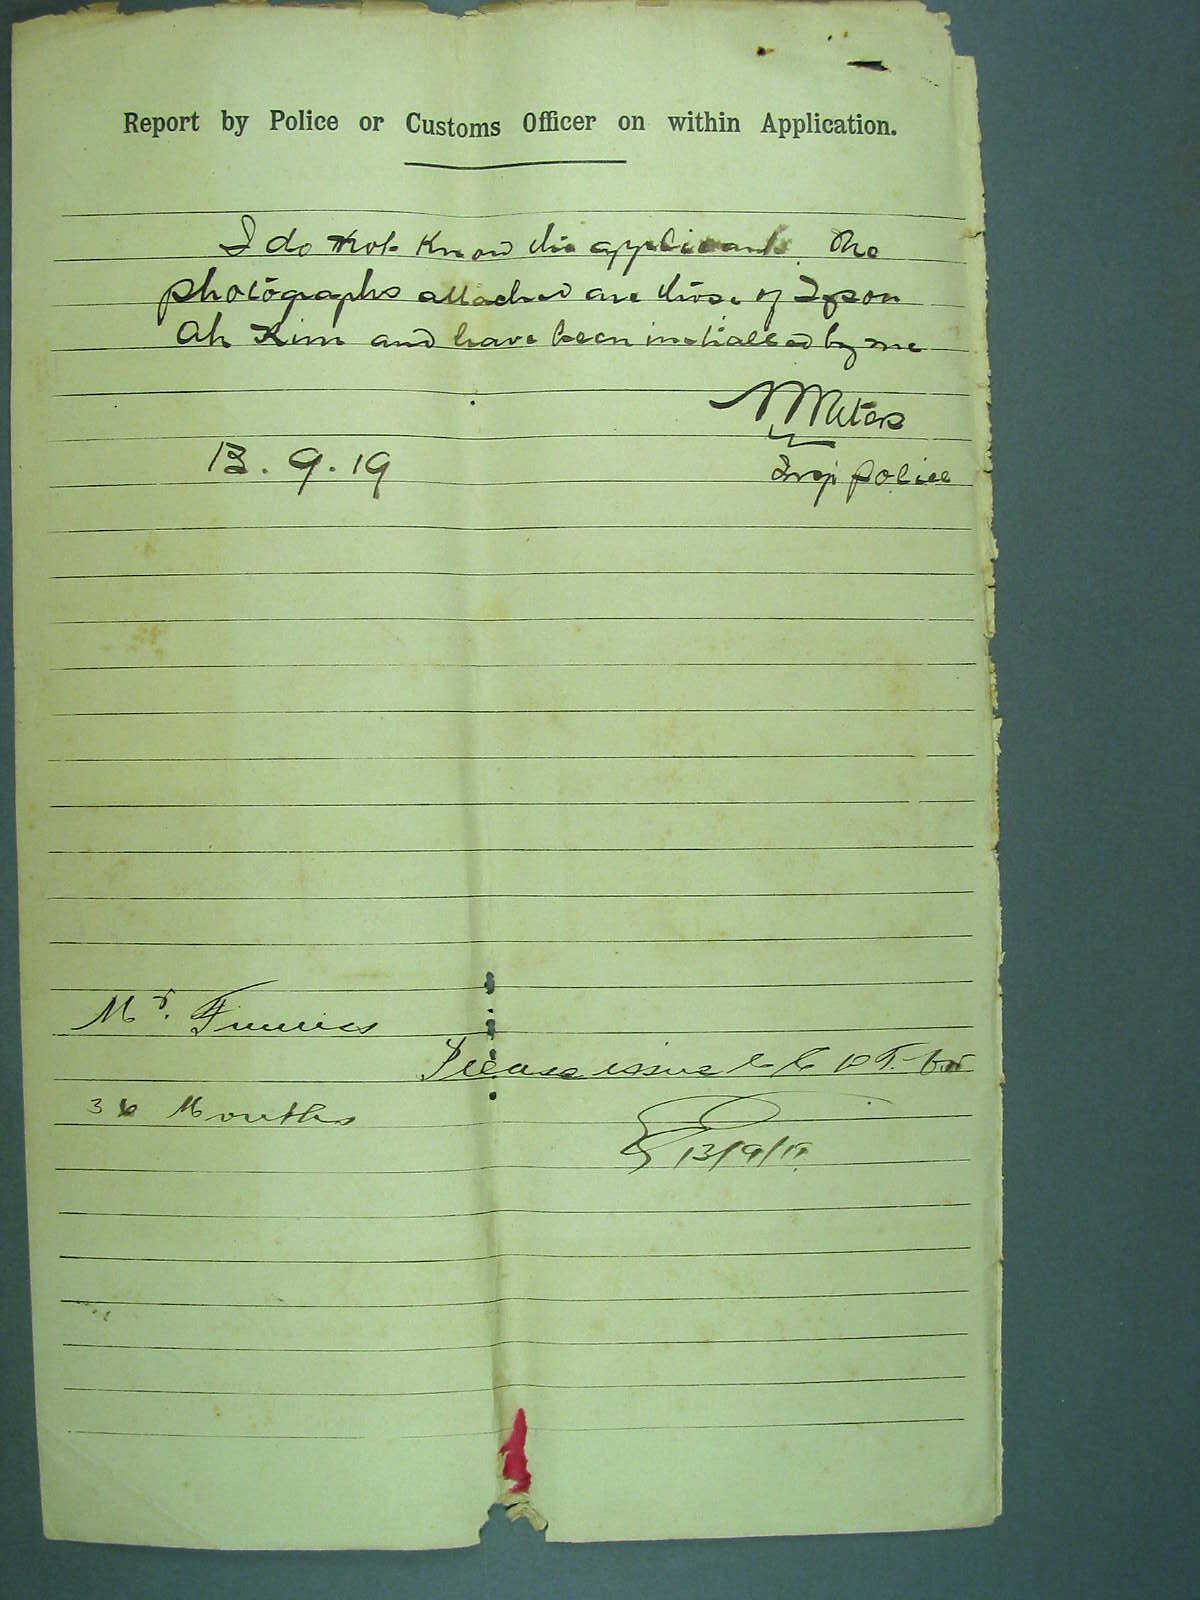 Report by Police or Customs Officer on within Application.
I do not know the applicant. The
photographs attached are those of Tyson
Ah Kim and have been initialled by me
Insp police
13. 9. 19
Mr.
Please issue C E D T. for
36 Months
13/9/19